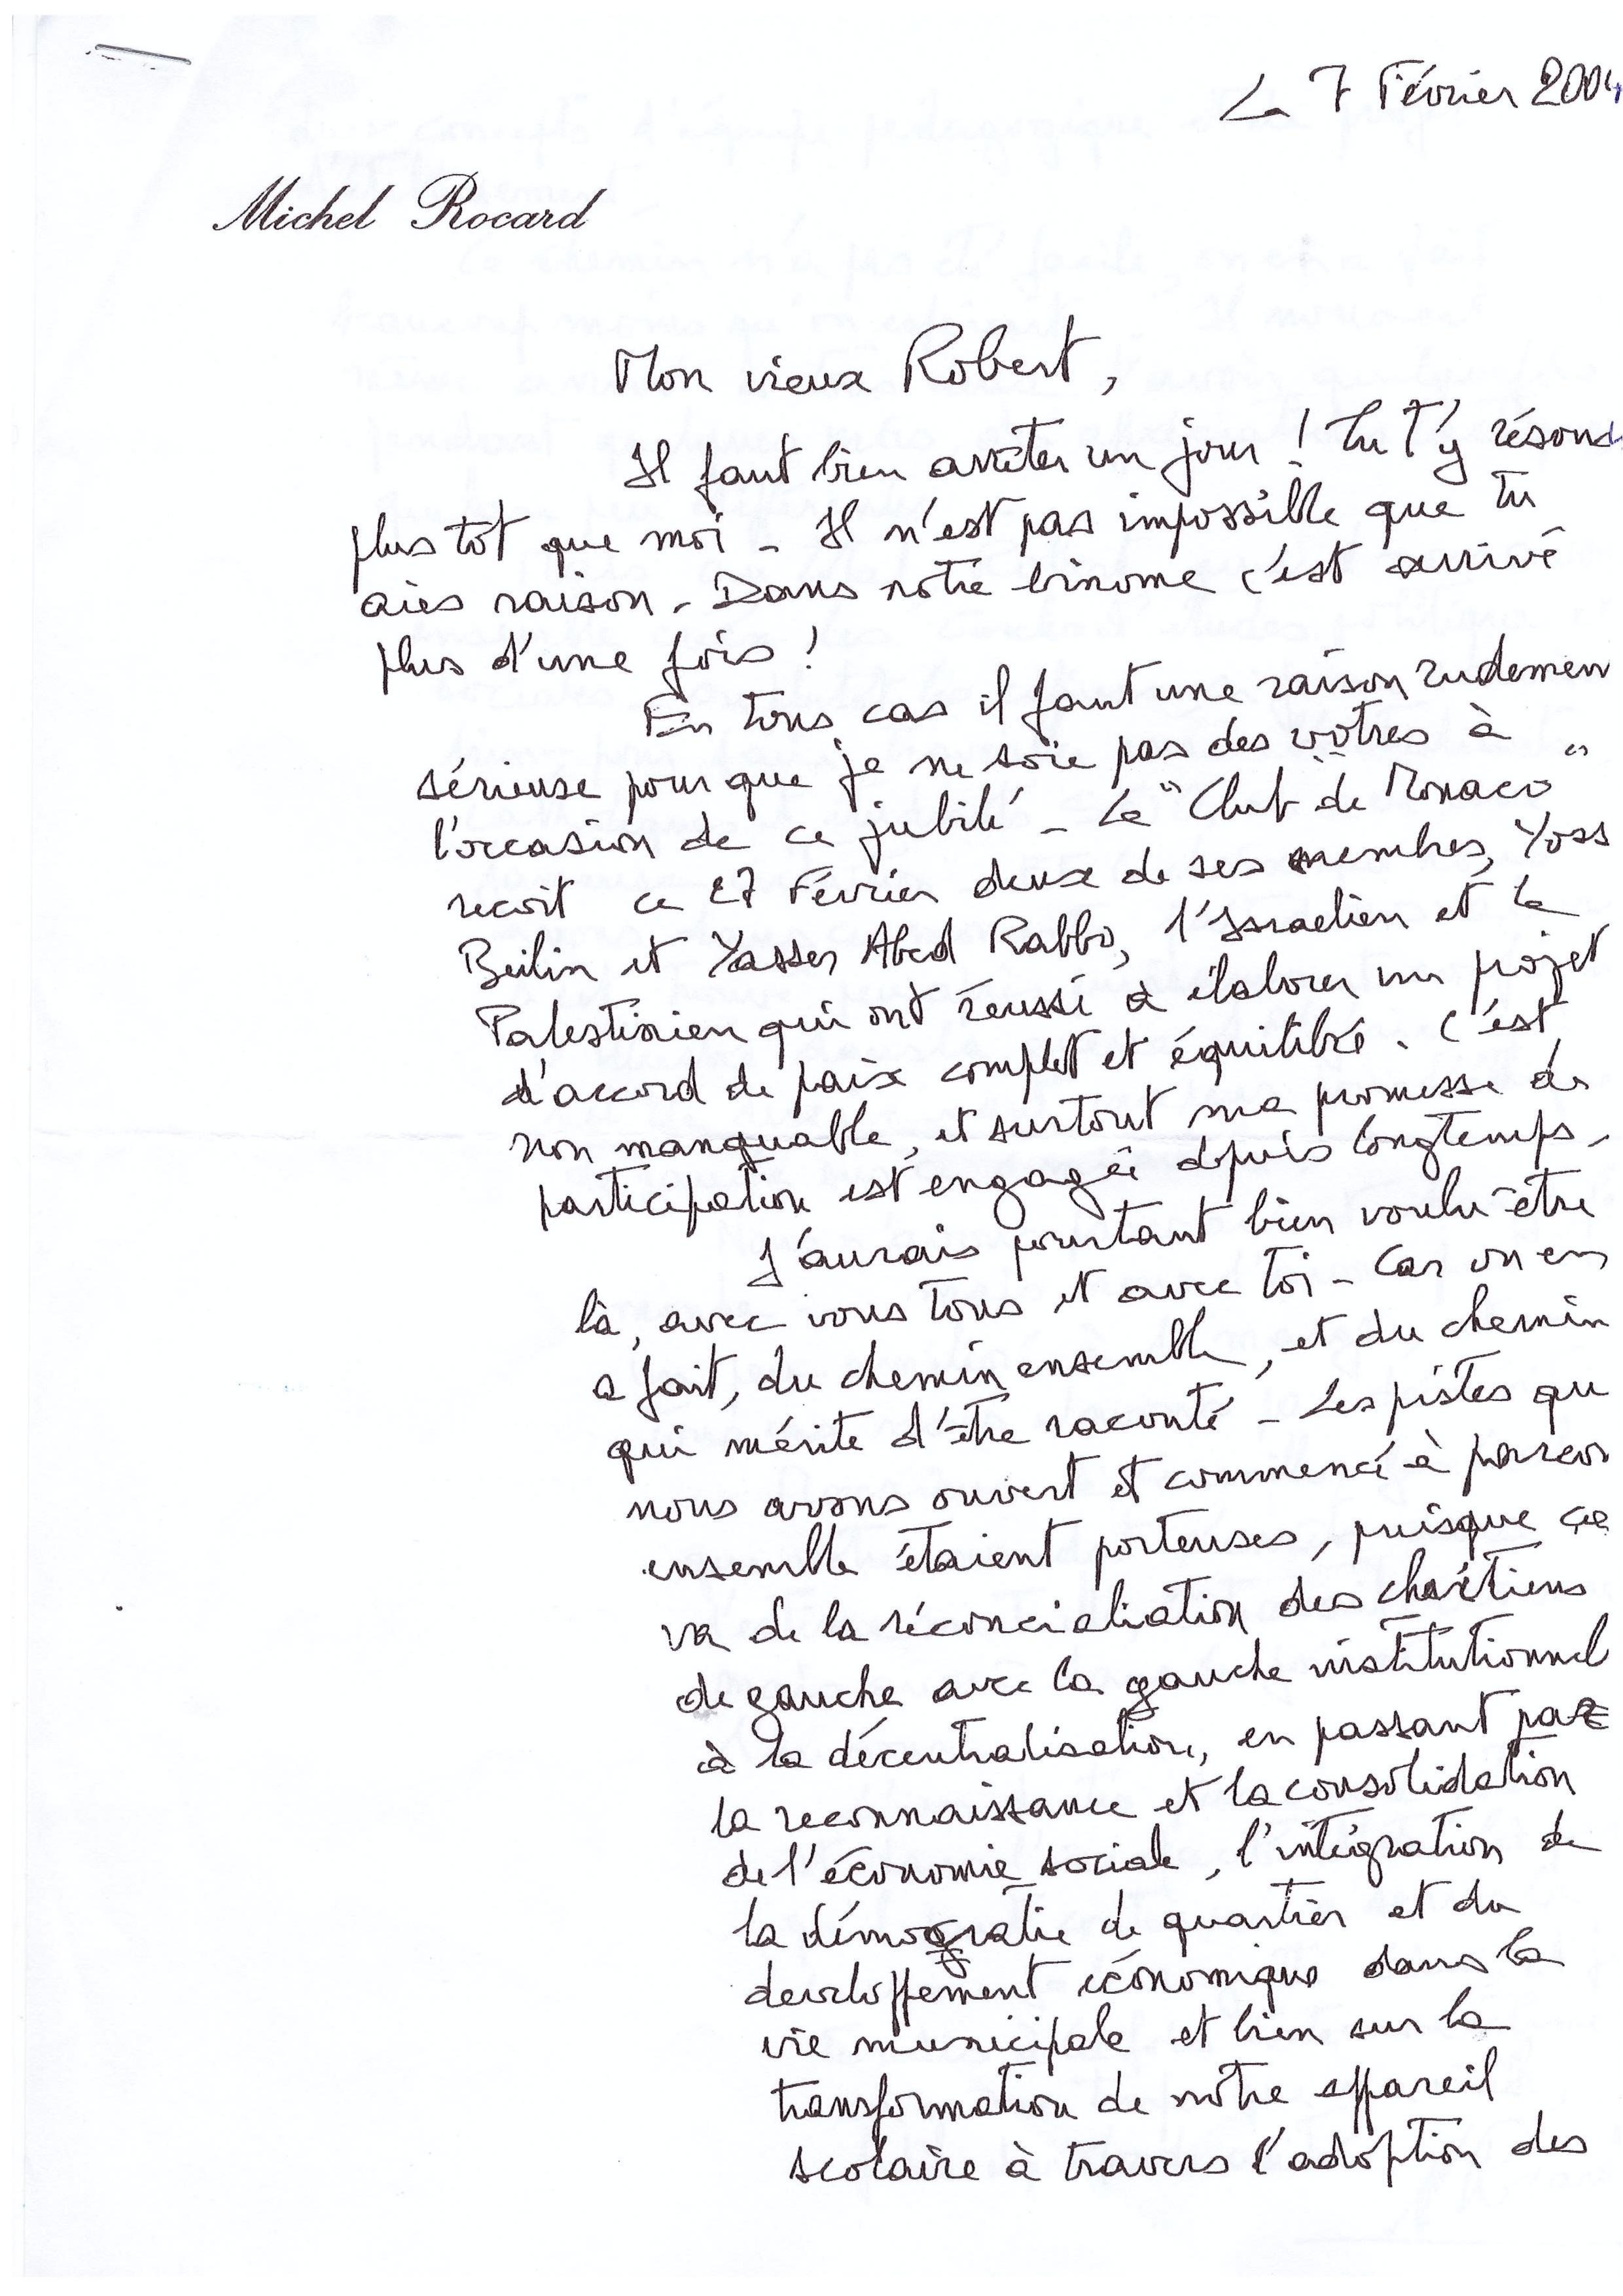 Le 7 Février 2004
Michel Rocard
Mon vieux Robert,
Il faut bien arrêter un jour ! Tu t'y résous
plus tôt que moi - Il n'est pas impossible que tu
aies raison. Dans notre binome c'est arrivé
plus d'une fois !
En tous cas il faut une raison rudemen
sérieuse pour que je ne soie pas des vôtres à
l'occasion de ce jubilé - Le "Club de Monaco"
recoit ce 27 Février deux de ses membres, Yoss
Beilin et Yasser Abed Rabbo, l'Israelien et le
Palestinien qui ont réussi à élaborer un projet
d'accord de paix complet et équilibré. C'est
non manquable, et surtout ma promesse de
participation est engagée depuis longtemps -
J'aurais pourtant bien voulu être
là, avec vous tous et avec toi - Car on en
a fait, du chemin ensemble, et du chemin
qui mérite d'être raconté - Les pistes qu
nous avons ouvert et commencé à parcou
ensemble étaient porteuses, puisque ça
va de la réconcialiation des chrétiens
de gauche avec la gauche institutionnel
à la décentralisation, en passant par
la reconnaissance et la consolidation
de l'économie sociale, l'intégration de
la démocratie de quartier et du
developpement économique dans la
vie municipale et bien sur la
transformation de notre appareil
scolaire à travers l'adoption des